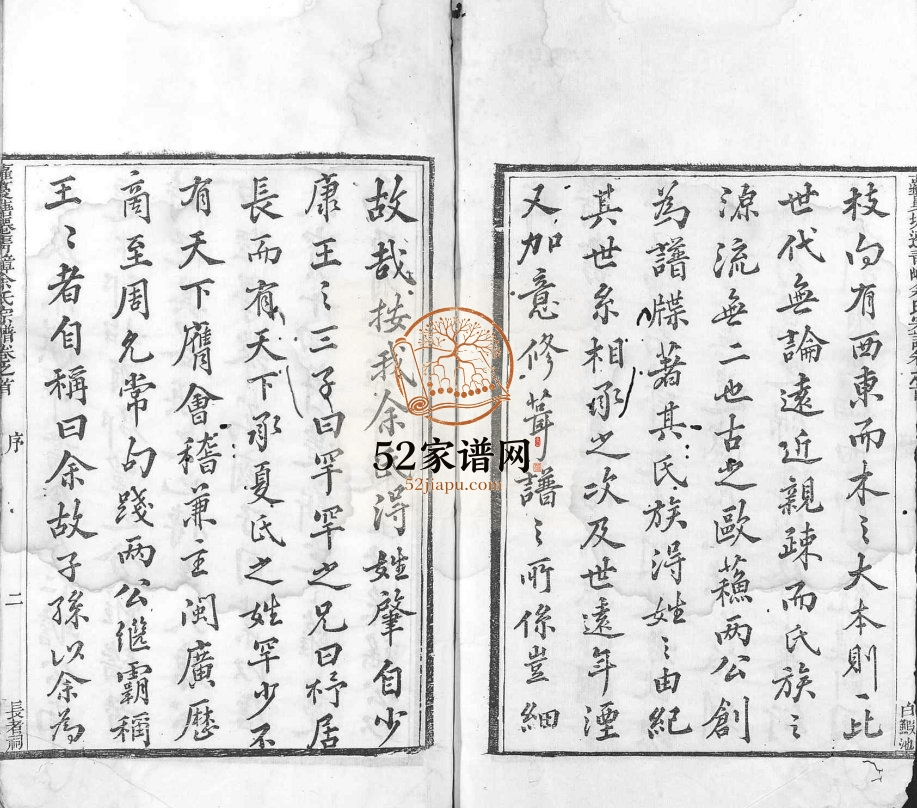 枝向有西東而木〻大本則一比
世代無論遠近親疎而氏族〻
源流無二也古之歐蘓两公創
為譜牒著其氏族淂姓〻由紀
其世系相承之次及世遠年湮
又加意修葺譜〻所係豈細
白鰕池
故哉按我余氏淂姓肇自少
康王〻三子曰罕罕之兄曰杼居
長而有天下承夏氏之姓罕少不
有天下膺會稽兼主閩廣歷
商至周允常勾踐两公继霸稱
王〻者自稱曰余故子孫以余為
余氏宗譜卷之首
序
二
長者祠
52家谱网
52jiapu.com